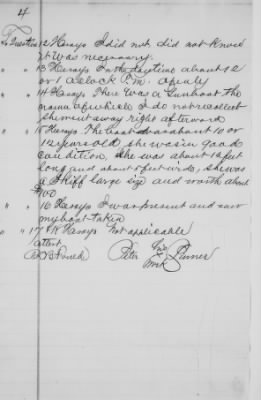 4
To Question 12 He says I did not, did not know
it was necessary.
" " 13 He says In the daytime about 12
or 1 o clock P.M.
" " 14 He says There was a Gunboat the
name of which I do not recollect
she went away right afterward
" " 15 He says The boat was about 10 or
12 years old, she was in good
condition. She was about 18 feet
long and about 5 feet wide, she was
a Skiff large size and worth about
" " 16 He says I was present and saw
my boat taken
" " 17 He says Not applicable
attest
Peter his mark